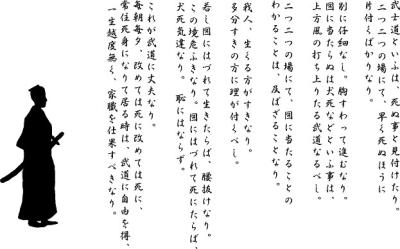 武士道といふは、死ぬ事と見付けたり。
二つ二つの場にて、早く死ぬほうに
片付くばかりなり。
別に仔細なし。胸すわって進むなり。
図に当たらぬは犬死などといふ事は、
上方風の打ち上りたる武道なるべし。
二つ二つの場にて、図に当たることの
わかることは、及ばざることなり。
我人、生くる方がすきなり。
多分すきの方に理が付くべし。
若し図にはづれて生きたらば、腰抜けなり。
この境危ふきなり。図にはづれて死にたらば、
犬死気違なり。 恥にはならず。
これが武道に丈夫なり。
毎朝毎夕、改めては死に改めては死に、
常住死身になりて居る時は、武道に自由を得、
一生越度無く、家職を仕果すべきなり。